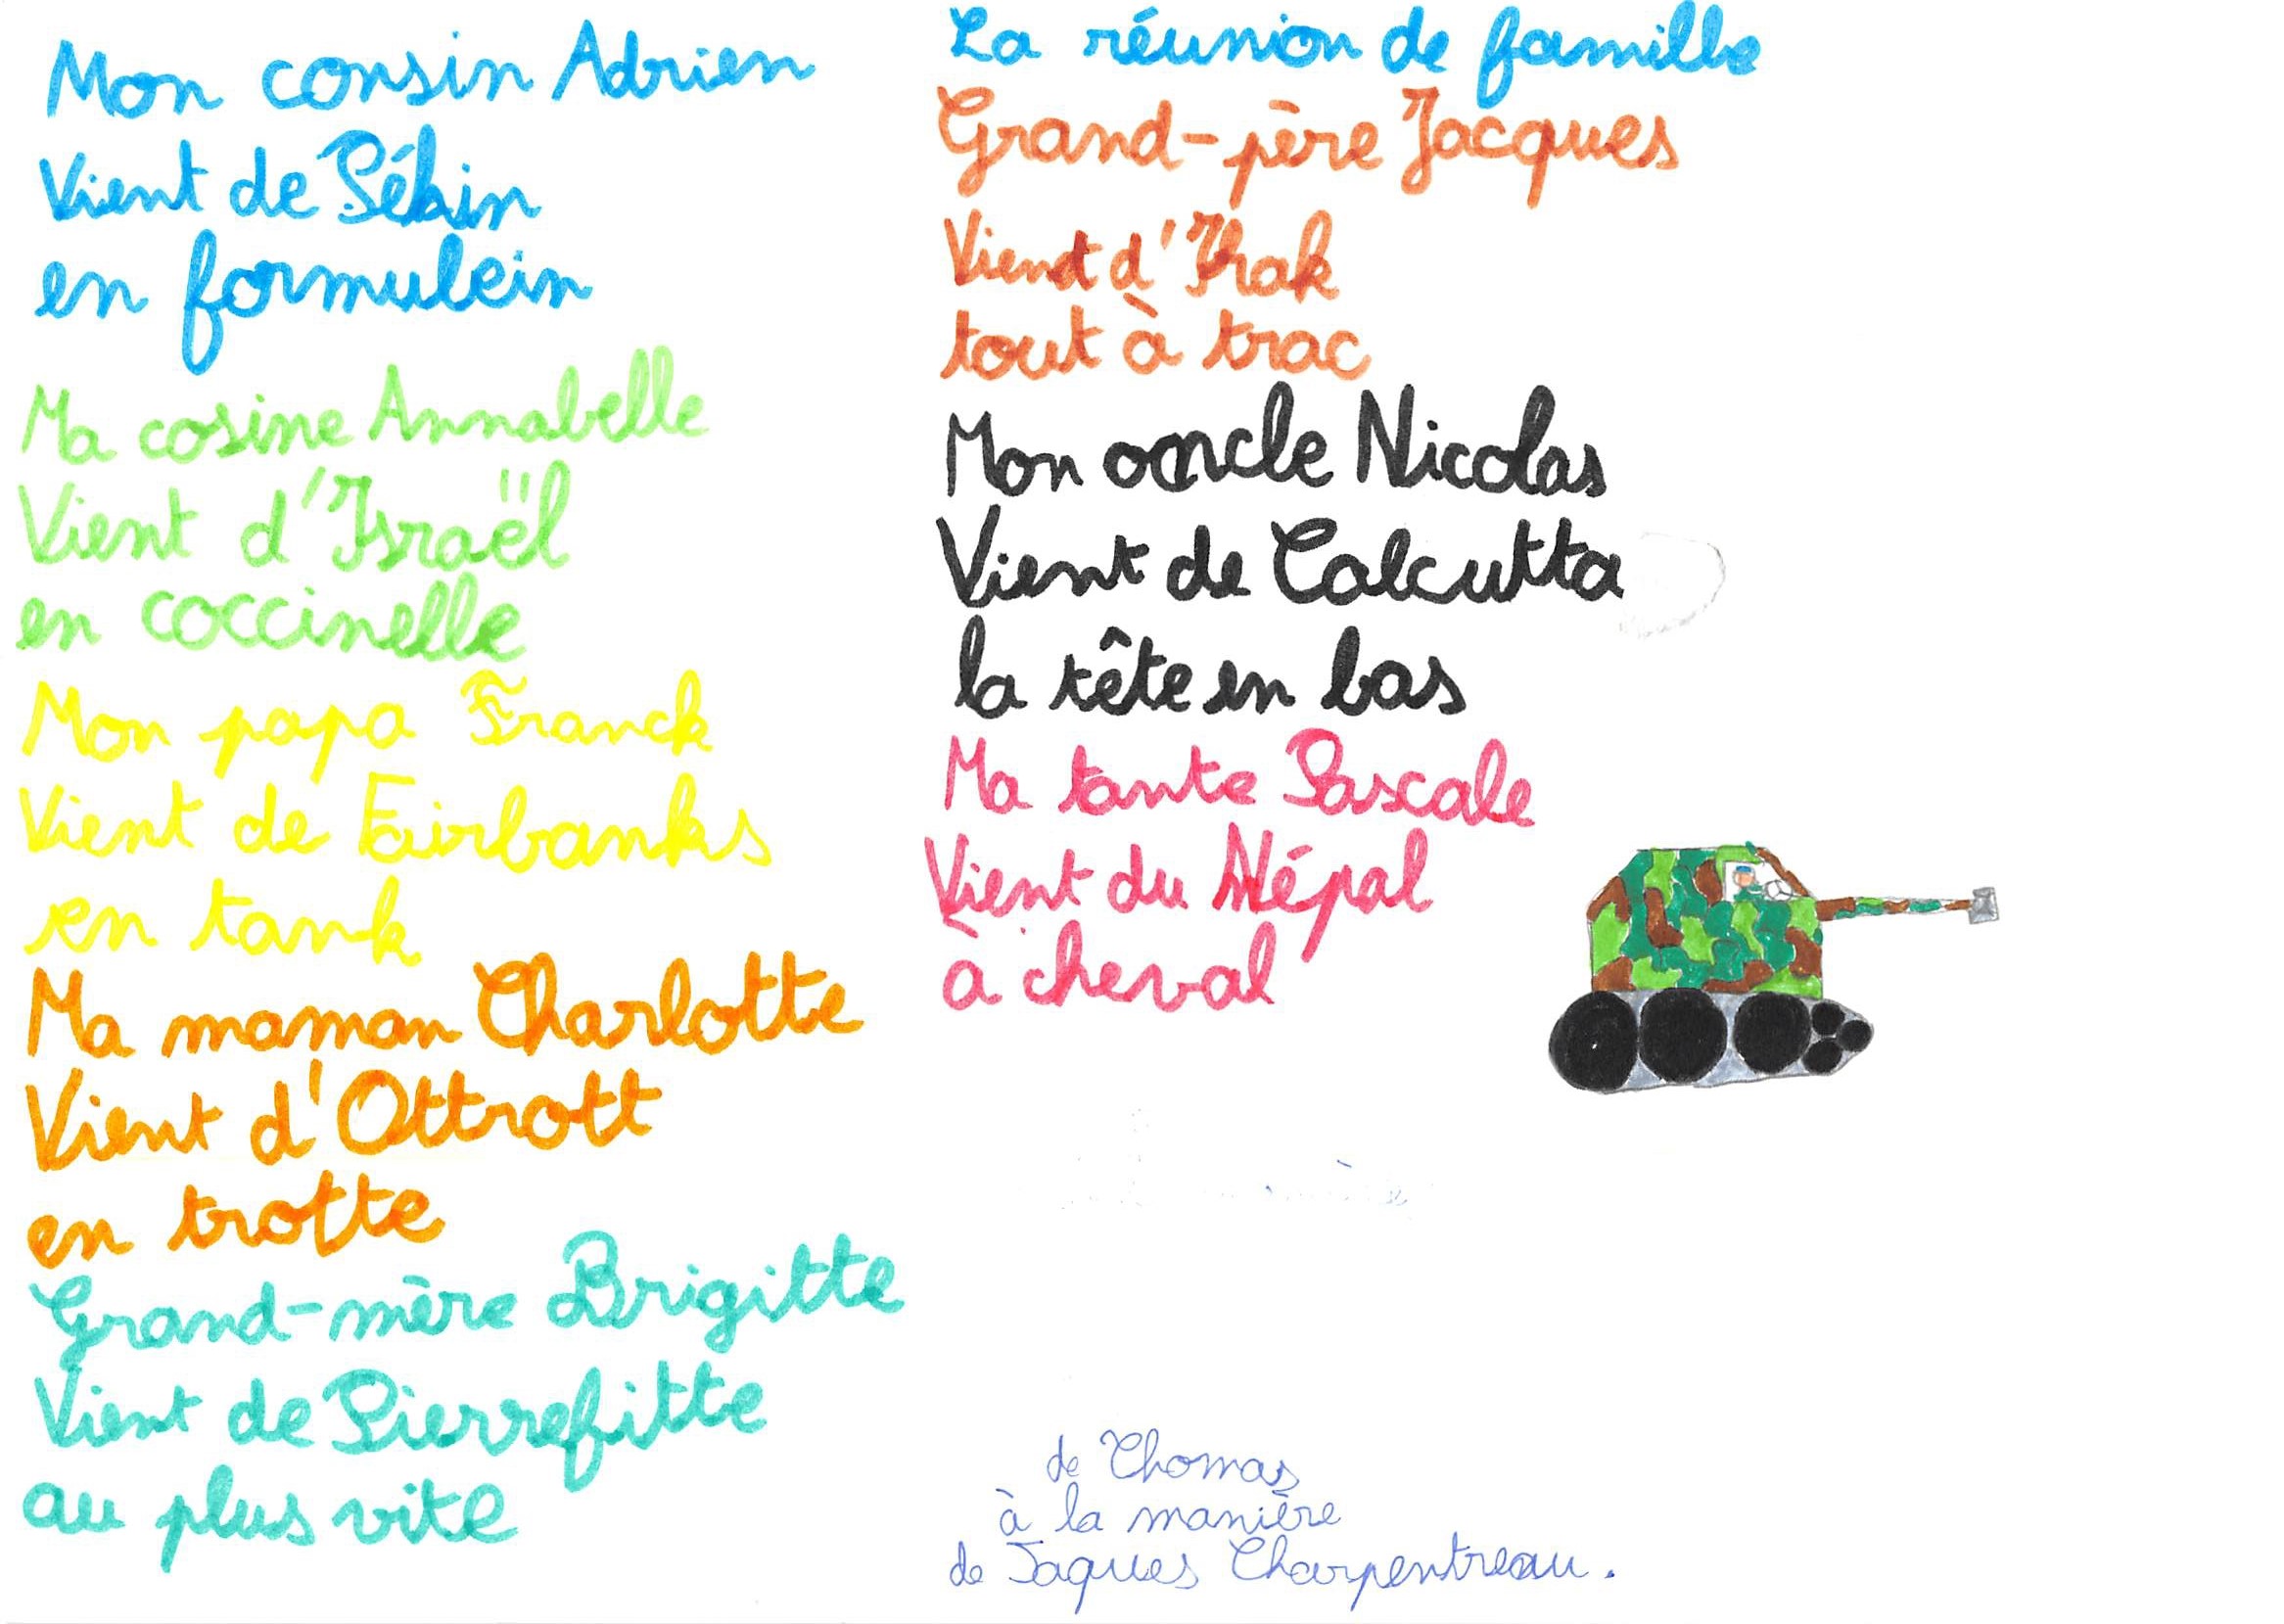 Mon consin Adrien
Vient de Pékin
en formulein
Ma cosine Annabelle
Vient d'Israël
en coccinelle
Mon papa Franck
Vient de Fairbanks
en tank
Ma maman Charlotte
Vient d'Ottrott
en trotte
Grand-mère Brigitte
Vient de Pierrefitte
au plus vite
La réunion de famille
Grand-père Jacques
Vient d'Irak
tout à trac
Mon oncle Nicolas
Vient de Calcutta
la tête en bas
Ma tante Pascale
Vient du Népal
à cheval
de Thomas
à la manière
de Jaques Charpentreau.